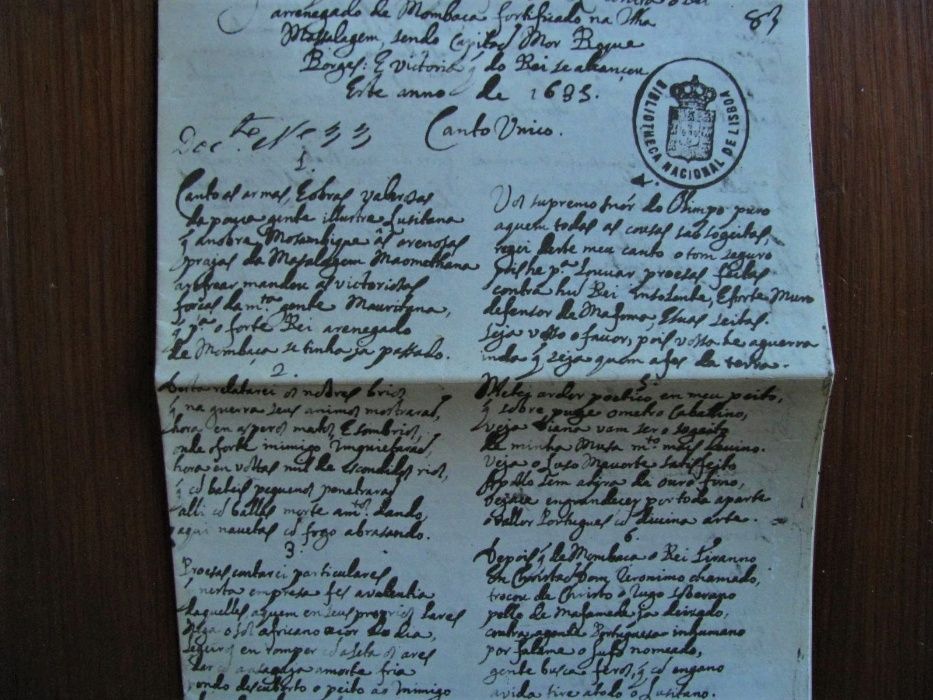 arrenegado de Mombaca fortificado na Ilha
Massalagem, sendo Capitaõ Mor Roque
Borges: E victoria q̃ do Rei se alcançou
Este anno de 1635.
83
BIBLIOTHECA NACIONAL DE LISBOA
Doc.to Nº 33
Canto Vnico.
1.
Canto as armas, E obras valerosas
da pouca gente illustre Lusitana
q̃ a nobre Mosambique âs arenosas
prajas da Masalagem Maomethana
mandou as victoriosas
forcas da m.ta gente Mauritana,
q̃ p.ª o forte Rei arenegado
de Mombaca, se tinha ja passado.
2.
relatarei os nobres brios
q̃ na guerra seus animos mostraraõ,
hora en asperos matos, E sombrios,
onde o forte inimigo
hora en voltas mil de escondidos rios,
q̃ cõ bateis pequenos penetraraõ
alli cõ balles morte a m.tos dando,
aqui navetas cõ fogo abrasando.
3.
Proesas cantarei particulares
nesta empresa fes a valentia
daquelles a quem en seus proprios lares
o sol africano do dia,
seguros en romper cõ a seta os ares
a morte fria
pondo descuberto o peito ao inimigo
4.
Vos supremo snõr do Olimpo puro
a quem todas as cousas saõ sogeitas,
regei deste meu canto o tom seguro
pois he p.ª Louvar proesas feitas
contra hũ Rei insolente, E forte Muro
defensor de Mafoma, E suas seitas.
seja vosso o favor, pois vossa he a guerra
inda q̃ seja quem a fes da terra.
5.
ardor poetico, en meu peito,
q̃ sobre puge o metro Cabalino,
veja Diana vam ser o sogeito
de minha Musa m.to mais divino.
Veja o Luso Mavorte satisfeito
Apollo sem a lira de ouro fino,
vejase engrandecer por toda a parte
o vallor Portugues cõ divina arte.
6.
Depois q̃ de Mombaca o Rei tiranno
en Christaõ Dom Jeronimo chamado,
trocou de Christo o Jugo soberano
pello de Mafamede ja deixado,
contra a gente Portuguesa inhumano
por falama o Sufo nomeado,
gente busca feros, q̃ cõ engano
a vida tire a todo o Lusitano.